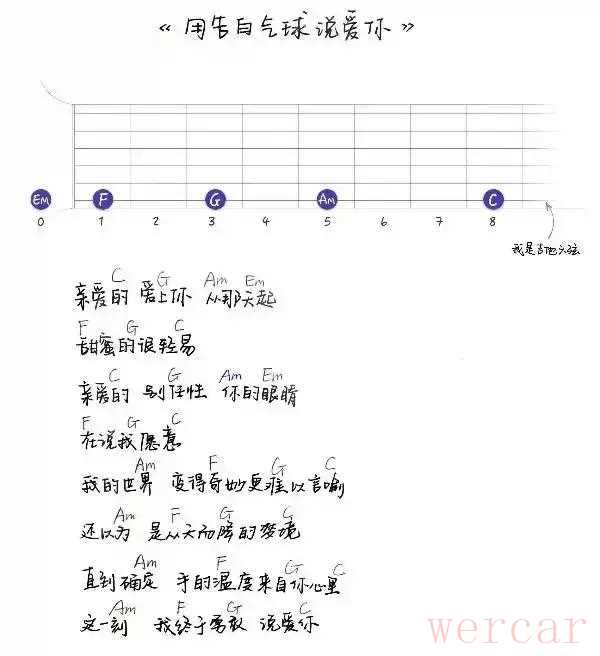 《用告白气球说爱你》
Em F G Am C
0 1 2 3 4 5 6 7 8
我是吉他六弦
C G Am Em
亲爱的 爱上你 从那天起
F G C
甜蜜的很轻易
C G Am Em
亲爱的 别任性 你的眼睛
F G C
在说我愿意
Am F G C
我的世界 变得奇妙更难以言喻
Am F G C
还以为 是从天而降的梦境
Am F G C
直到确定 手的温度来自你心里
Am F G C
这一刻 我终于勇敢 说爱你
wercar